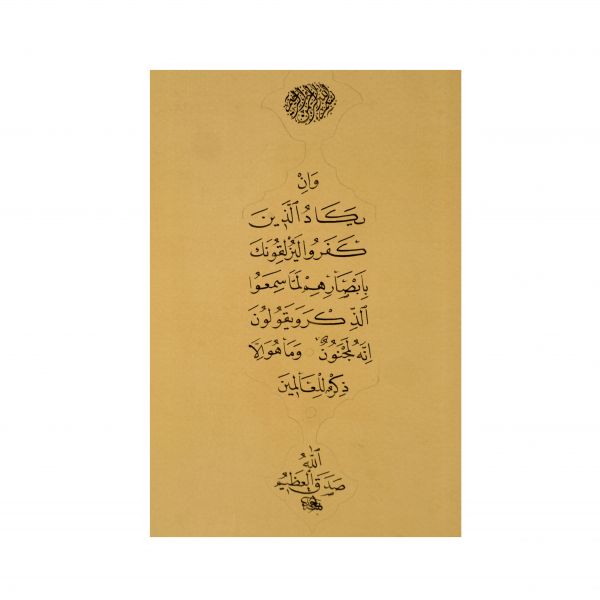 بسم الله الرحمن الرحيم
وَاِنْ
يَكَادُ الَّذِينَ
كَفَرُوا لَيُزْلِقُونَكَ
بِاَبْصَارِهِمْ لَمَّا سَمِعُوا
الذِّكْرَ وَيَقُولُونَ
اِنَّهُ لَمَجْنُونٌ وَمَا هُوَ اِلَّا
ذِكْرٌ لِلْعَالَمِينَ
صَدَقَ اللّٰهُ الْعَظِيمُ